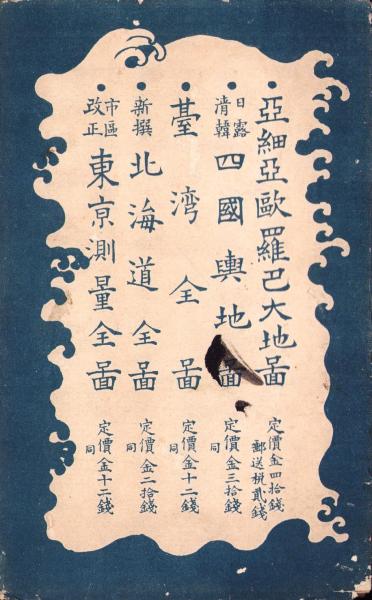 亞細亞歐羅巴大地啚
定價金四拾錢
郵送税貳錢
日露
清韓
四國輿地啚
定價金三拾錢
同
臺灣全啚
定價金十二錢
同
新撰
北海道全啚
定價金二拾錢
同
市區
改正
東京測量全啚
定價金十二錢
同